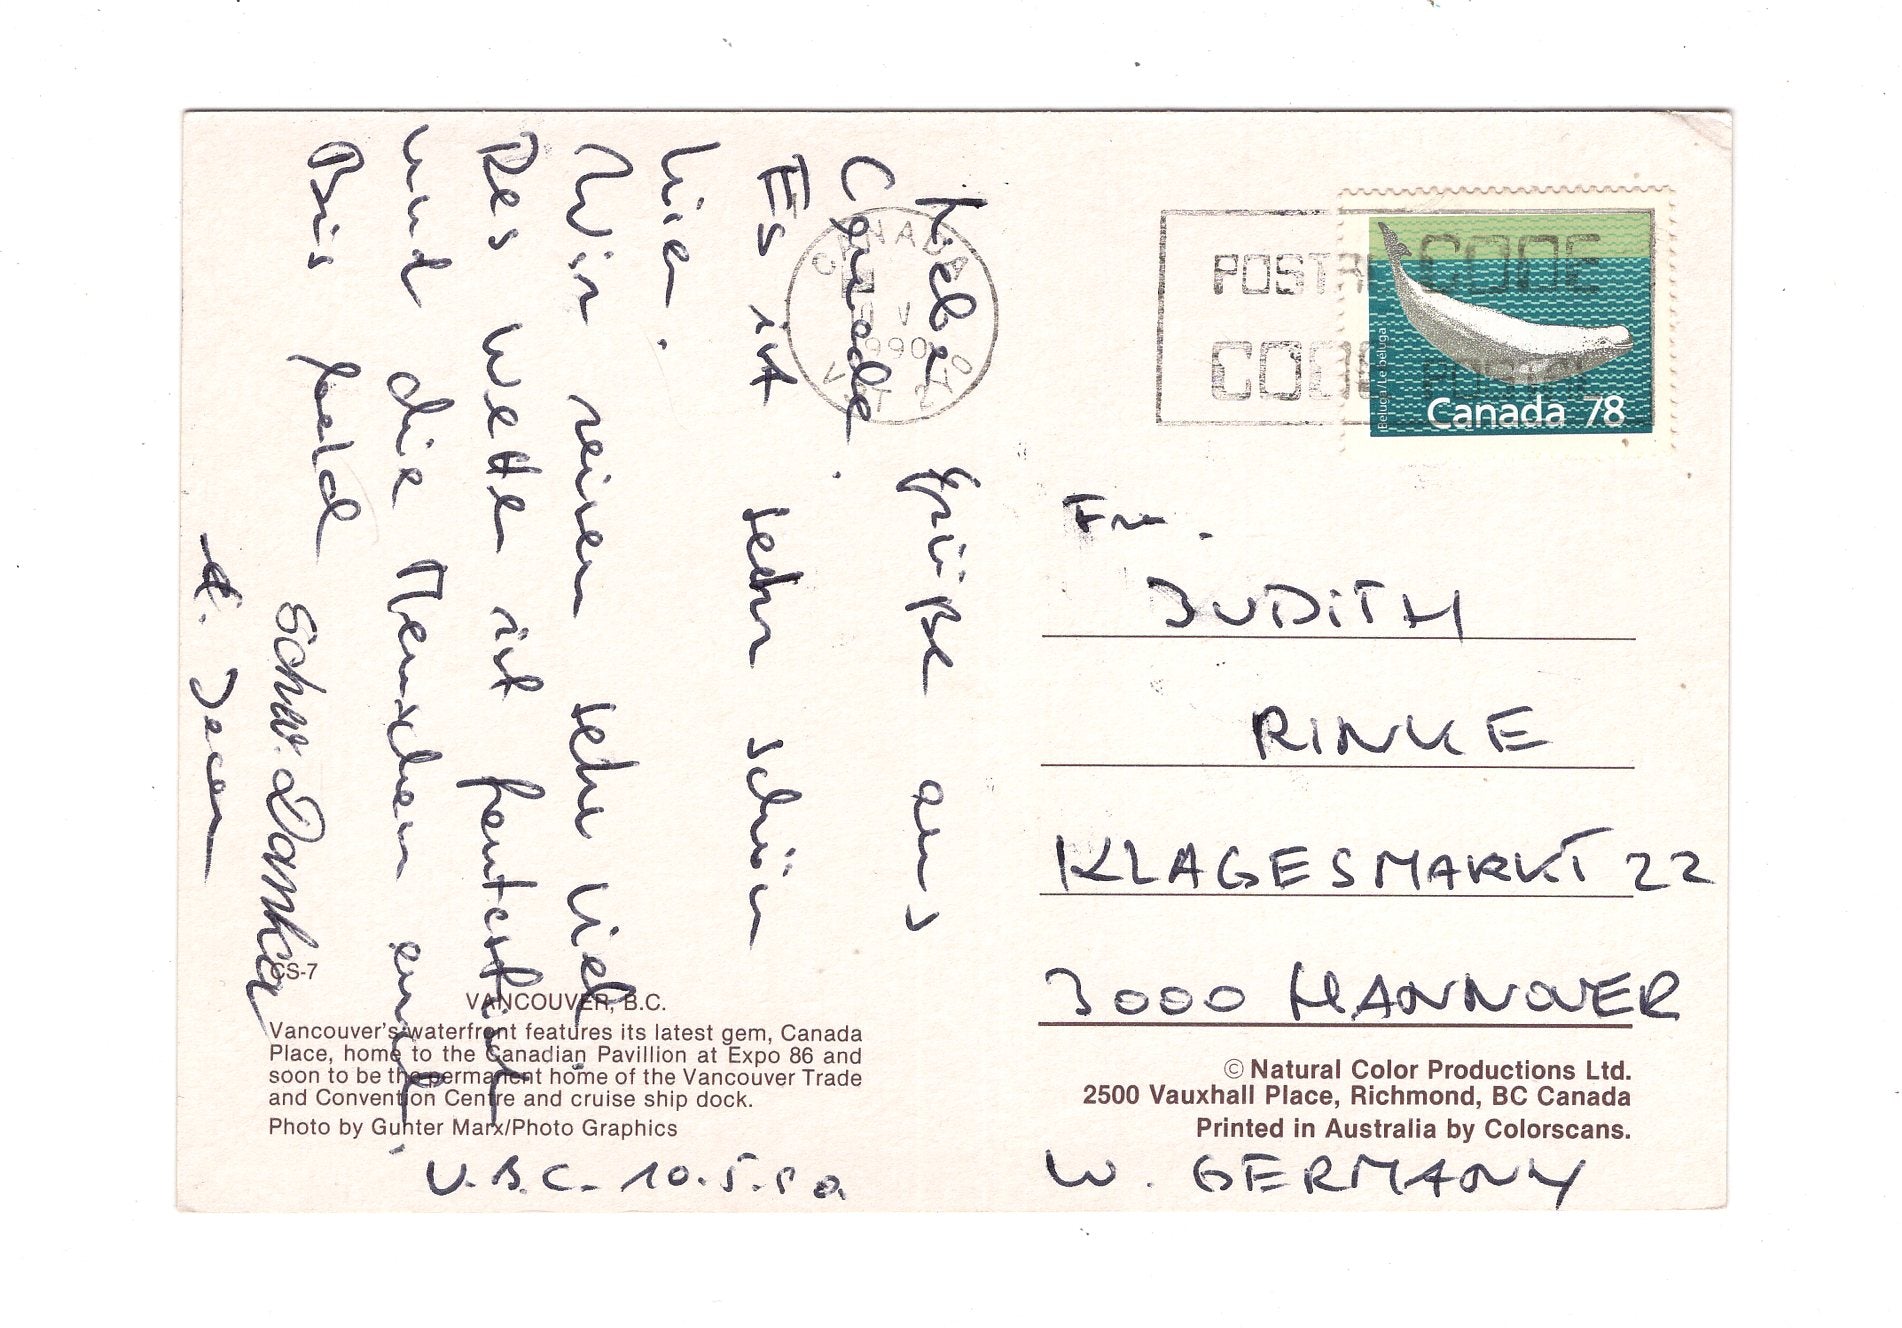 Liebe Grüße aus
Canada.
Es ist sehr schön
hier.
Wir reisen sehr viel.
Des Wetter ist fantastisch
und die Menschen auch.
Bis bald
Schw. Danker
V.B.C. 10.5.90
CS-7
VANCOUVER, B.C.
Vancouver's waterfront features its latest gem, Canada
Place, home to the Canadian Pavillion at Expo 86 and
soon to be the permanent home of the Vancouver Trade
and Convention Centre and cruise ship dock.
Photo by Gunter Marx/Photo Graphics
CANADA
V
1990
POSTAL CODE
CODE POSTAL
Beluga / Le béluga
Canada 78
Fr.
JUDITH
RINKE
KLAGESMARKT 22
3000 HANNOVER
© Natural Color Productions Ltd.
2500 Vauxhall Place, Richmond, BC Canada
Printed in Australia by Colorscans.
W. GERMANY